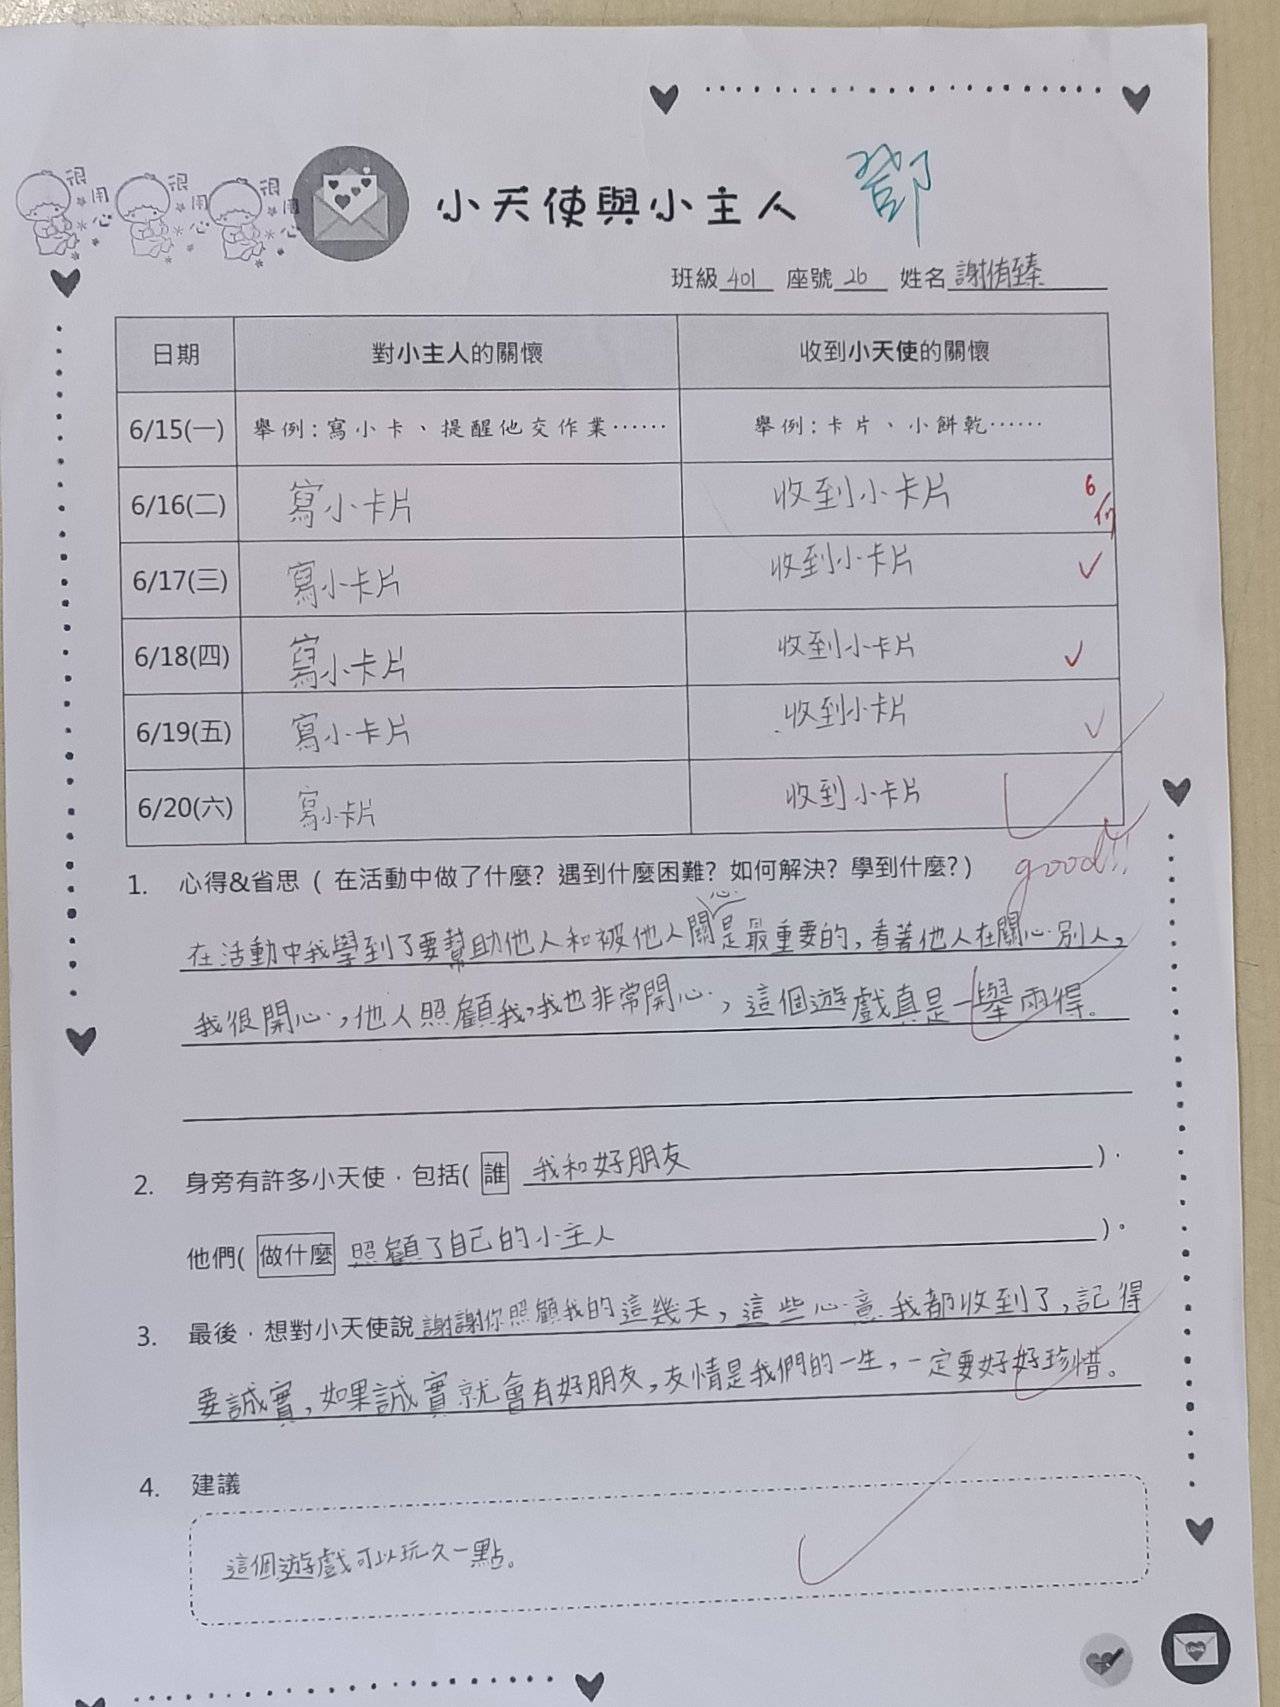 很用心 很用心 很用心
小天使與小主人 鄧
班級 401 座號 26 姓名 謝侑臻
日期 對小主人的關懷 收到小天使的關懷
6/15(一) 舉例:寫小卡、提醒他交作業⋯⋯ 舉例:卡片、小餅乾⋯⋯
6/16(二) 寫小卡片 收到小卡片 6/17
6/17(三) 寫小卡片 收到小卡片
6/18(四) 寫小卡片 收到小卡片
6/19(五) 寫小卡片 收到小卡片
6/20(六) 寫小卡片 收到小卡片
1. 心得&省思 ( 在活動中做了什麼? 遇到什麼困難? 如何解決? 學到什麼? ) good!!
在活動中我學到了要幫助他人和被他人關心是最重要的,看著他人在關心別人,
我很開心,他人照顧我,我也非常開心,這個遊戲真是一舉兩得。
2. 身旁有許多小天使,包括( 誰 我和好朋友 ),
他們( 做什麼 照顧了自己的小主人 )。
3. 最後,想對小天使說 謝謝你照顧我的這幾天,這些心意我都收到了,記得
要誠實,如果誠實就會有好朋友,友情是我們的一生,一定要好好珍惜。
4. 建議
這個遊戲可以玩久一點。
LOVE